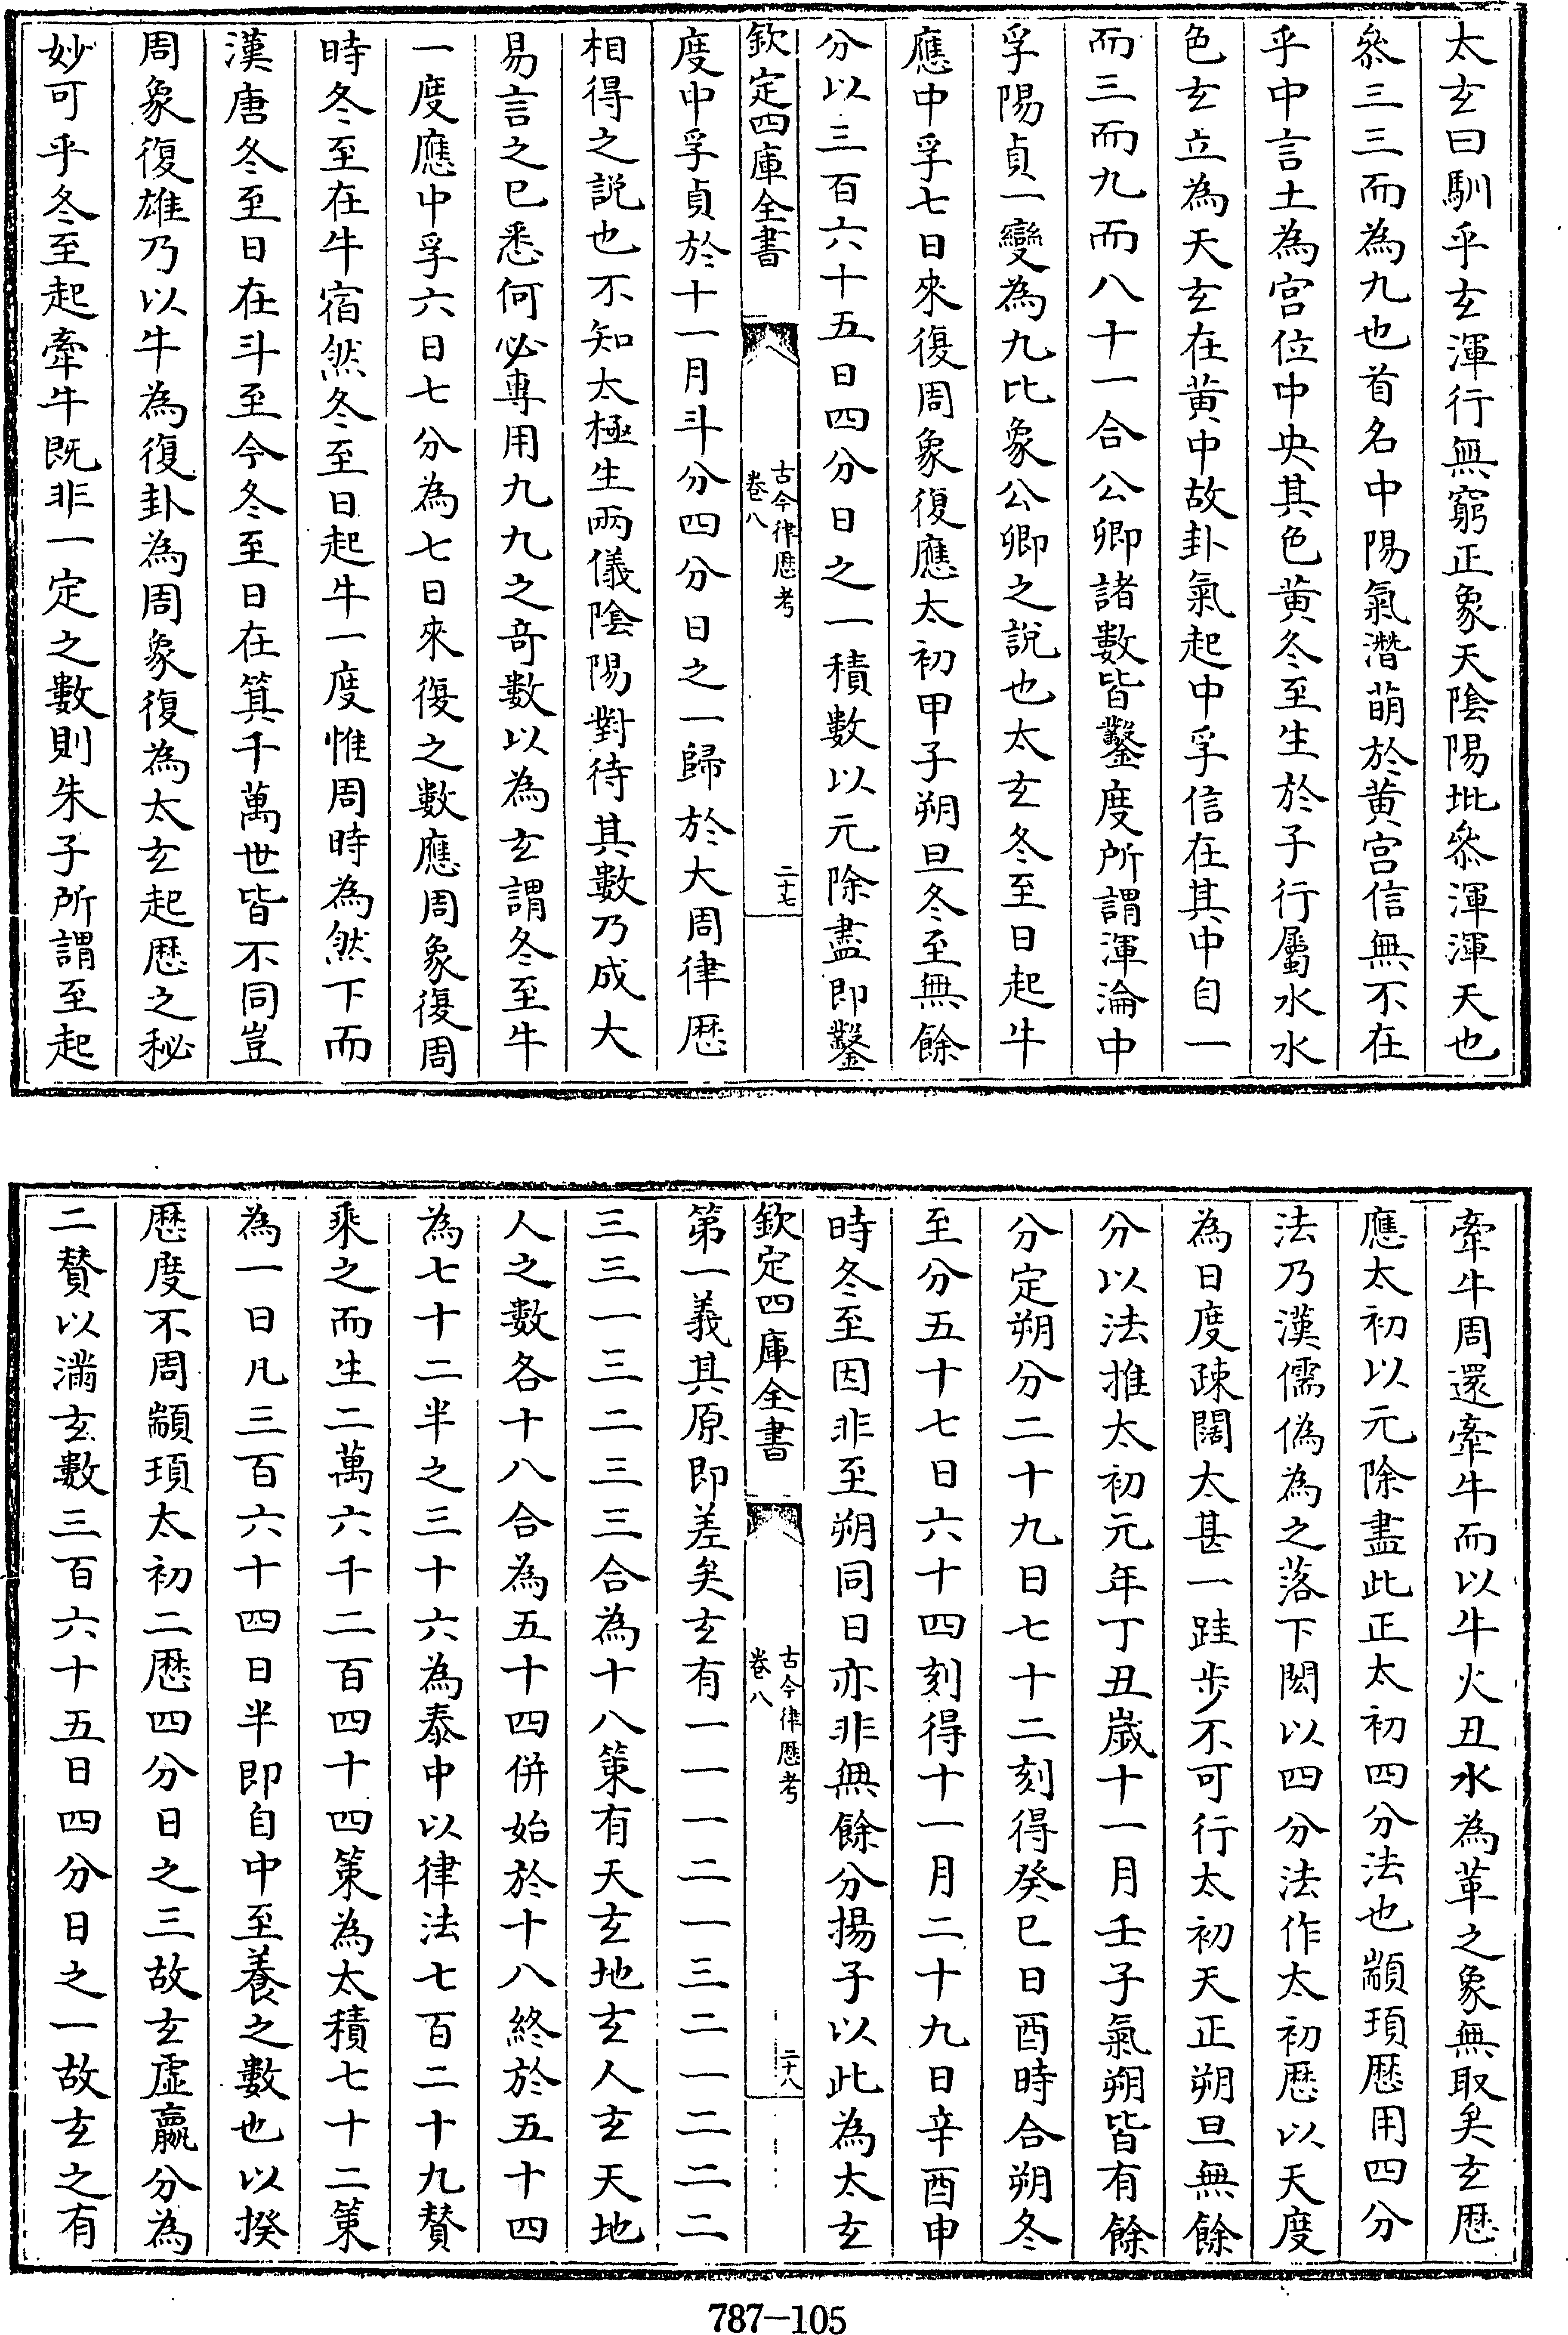 太玄曰馴乎玄渾行無窮正象天陰陽坒叅渾渾天也
叅三三而為九也首名中陽氣潛萌於黄宫信無不在
乎中言土為宫位中央其色黄冬至生於子行屬水水
色玄立為天玄在黄中故卦氣起中孚信在其中自一
而三而九而八十一合公卿諸數皆鑿度所謂渾淪中
孚陽貞一變為九比象公卿之說也太玄冬至日起牛
應中孚七日來復周象復應太初甲子朔旦冬至無餘
分以三百六十五日四分日之一積數以元除盡即鑿
欽定四庫全書
古今律歷考
卷八
二十七
度中孚貞於十一月斗分四分日之一歸於大周律歷
相得之說也不知太極生兩儀陰陽對待其數乃成大
易言之已悉何必專用九九之奇數以為玄謂冬至牛
一度應中孚六日七分為七日來復之數應周象復周
時冬至在牛宿然冬至日起牛一度惟周時為然下而
漢唐冬至日在斗至今冬至日在箕千萬世皆不同豈
周象復雄乃以牛為復卦為周象復為太玄起歷之秘
妙可乎冬至起牽牛既非一定之數則朱子所謂至起
牽牛周還牽牛而以牛火丑水為革之象無取矣玄歷
應太初以元除盡此正太初四分法也顓頊歷用四分
法乃漢儒偽為之落下閎以四分法作太初歷以天度
為日度疎闊太甚一跬步不可行太初天正朔旦無餘
分以法推太初元年丁丑歲十一月壬子氣朔皆有餘
分定朔分二十九日七十二刻得癸巳日酉時合朔冬
至分五十七日六十四刻得十一月二十九日辛酉申
時冬至因非至朔同日亦非無餘分揚子以此為太玄
欽定四庫全書
古今律歷考
卷八
二十八
第一義其原即差矣玄有一一一二一三二一二二二
三三一三二三三合為十八策有天玄地玄人玄天地
人之數各十八合為五十四併始於十八終於五十四
為七十二半之三十六為泰中以律法七百二十九贊
乘之而生二萬六千二百四十四策為太積七十二策
為一日凡三百六十四日半即自中至養之數也以揆
歷度不周顓頊太初二歷四分日之三故玄虛嬴分為
二贊以滿玄數三百六十五日四分日之一故玄之有
787—105